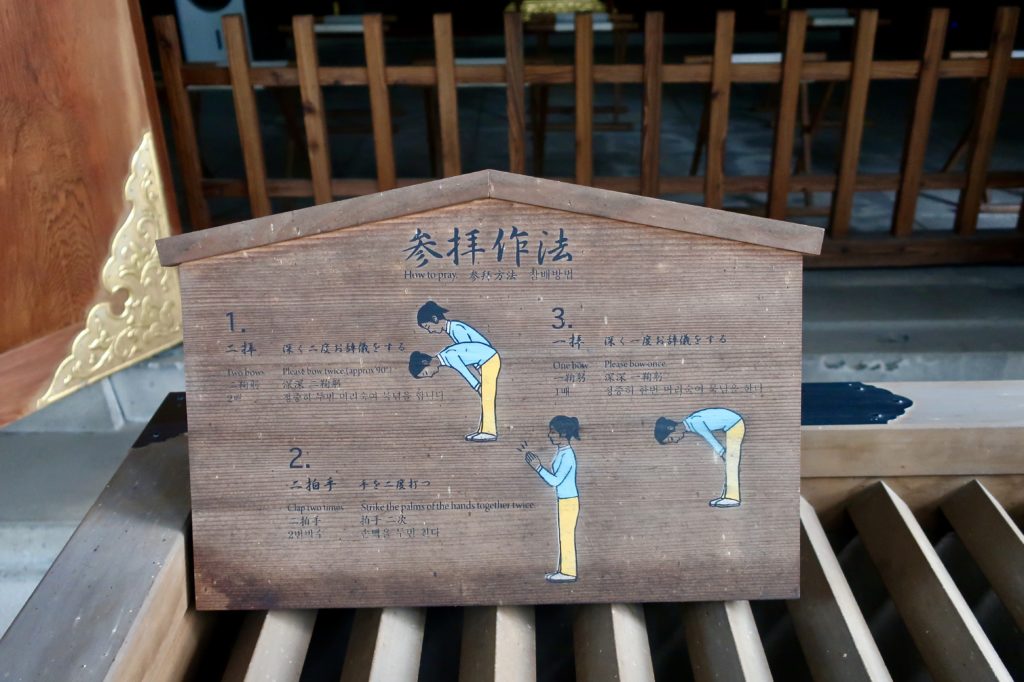 参拝作法
How to pray. 参拜方法 참배방법
1.
二拝 深く二度お辞儀をする
Two bows Please bow twice.(approx 90°)
二鞠躬 深深 二鞠躬
2배 정중히 두번 머리숙여 묵념을 합니다
2.
二拍手 手を二度打つ
Clap two times Strike the palms of the hands together twice.
二拍手 拍手 二次
2번박수 손뼉을 두번 친다
3.
一拝 深く一度お辞儀をする
One bow Please bow once.
一鞠躬 深深 一鞠躬
1배 정중히 한번 머리숙여 묵념을 한다